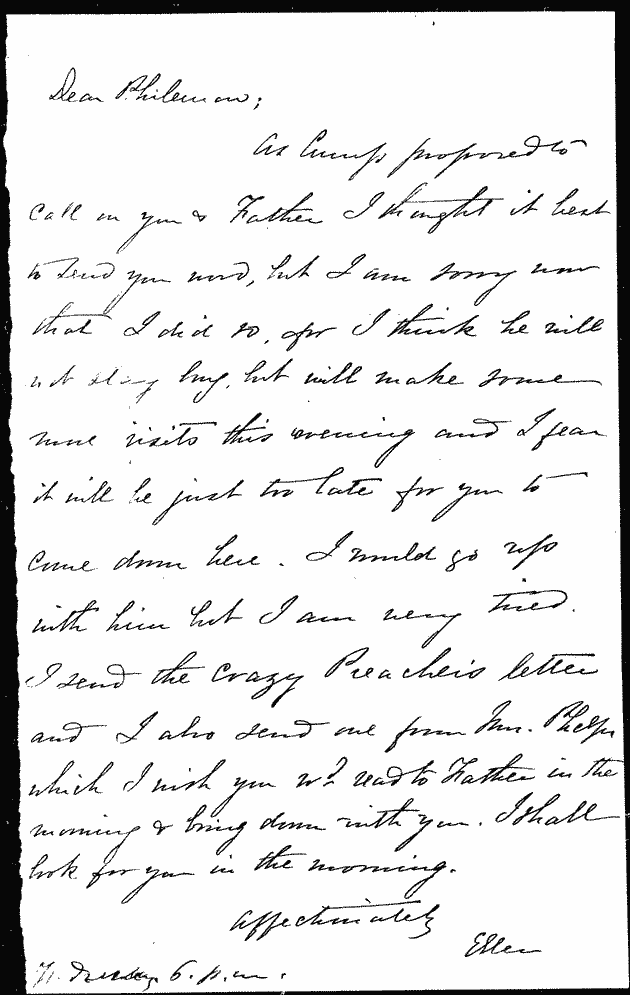 Dear Philemon;
As Cump proposed to
call on you & Father I thought it best
to send you word, but I am sorry now
that I did so, for I think he will
not stay long, but will make some
more visits this evening and I fear
it will be just too late for you to
come down here. I would go up
with him but I am very tired.
I send the crazy Preacher's letter
and I also send one from Mrs. Phelps
which I wish you wd read to Father in the
morning & bring down with you. I shall
look for you in the morning.
Affectionately
Ellen
6. p.m.